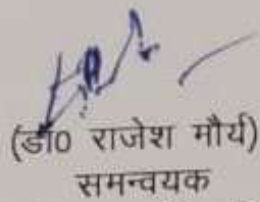 (डॉ0 राजेश मौर्य)
समन्वयक